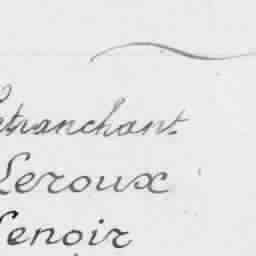 Letranchant
Leroux
Lenoir